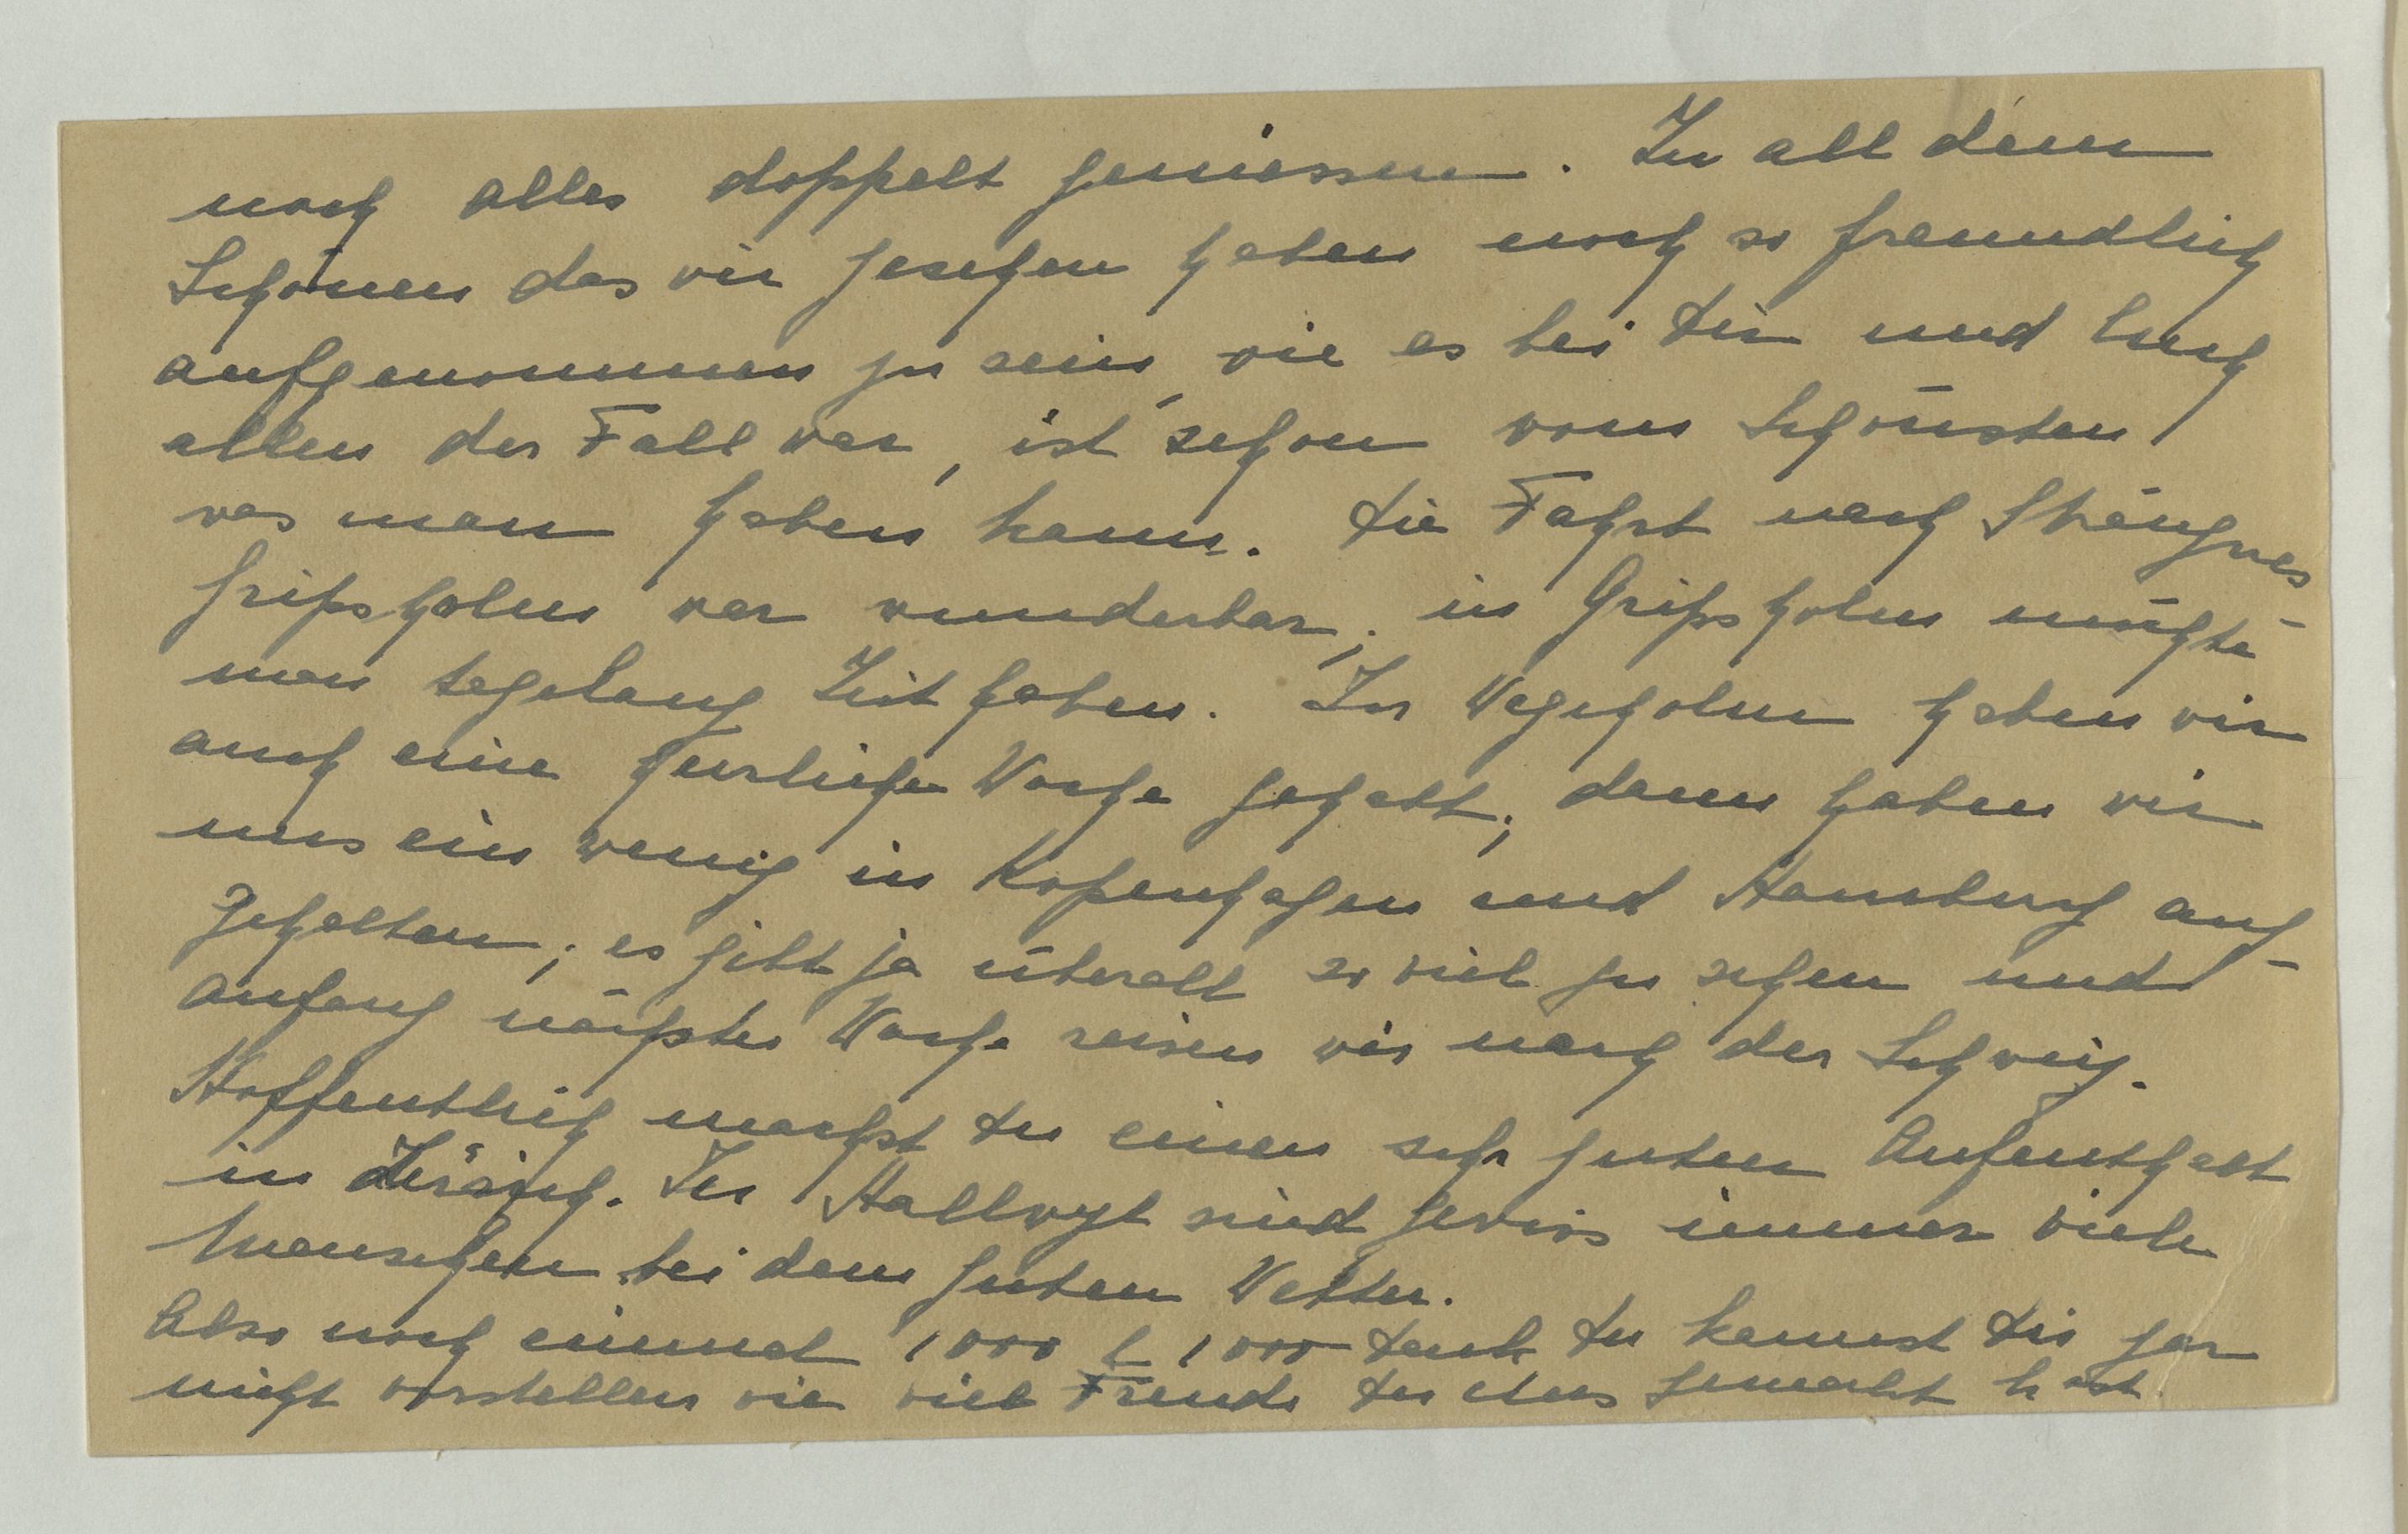 noch alles doppelt geniessen. Zu all dem
Schönen das wir gesehen haben noch so freundlich
aufgenommen zu sein, wie es bei Dir und Euch
allen der Fall war, ist schon vom Schönsten
was man haben kann. Die Fahrt nach Strängnes
Gripsholm war wunderbar; in Gripsholm möchte
man tagelang Zeit haben. In Wegeholm haben wir
auch eine herrliche Woche gehabt; dann haben wir
uns ein wenig in Kopenhagen und Hamburg auf-
gehalten; es gibt ja überall so viel zu sehen und
Anfang nächster Woche reisen wir nach der Schweiz.
Hoffentlich machst Du einen sehr guten Aufenthalt
in Leräng. In Hallwyl sind gewiss immer viele
Menschen bei dem guten Wetter.
Also noch einmal 1000 & 1000 Dank Du kannst Dir gar
nicht vorstellen wie viel Freude Du uns gemacht hast